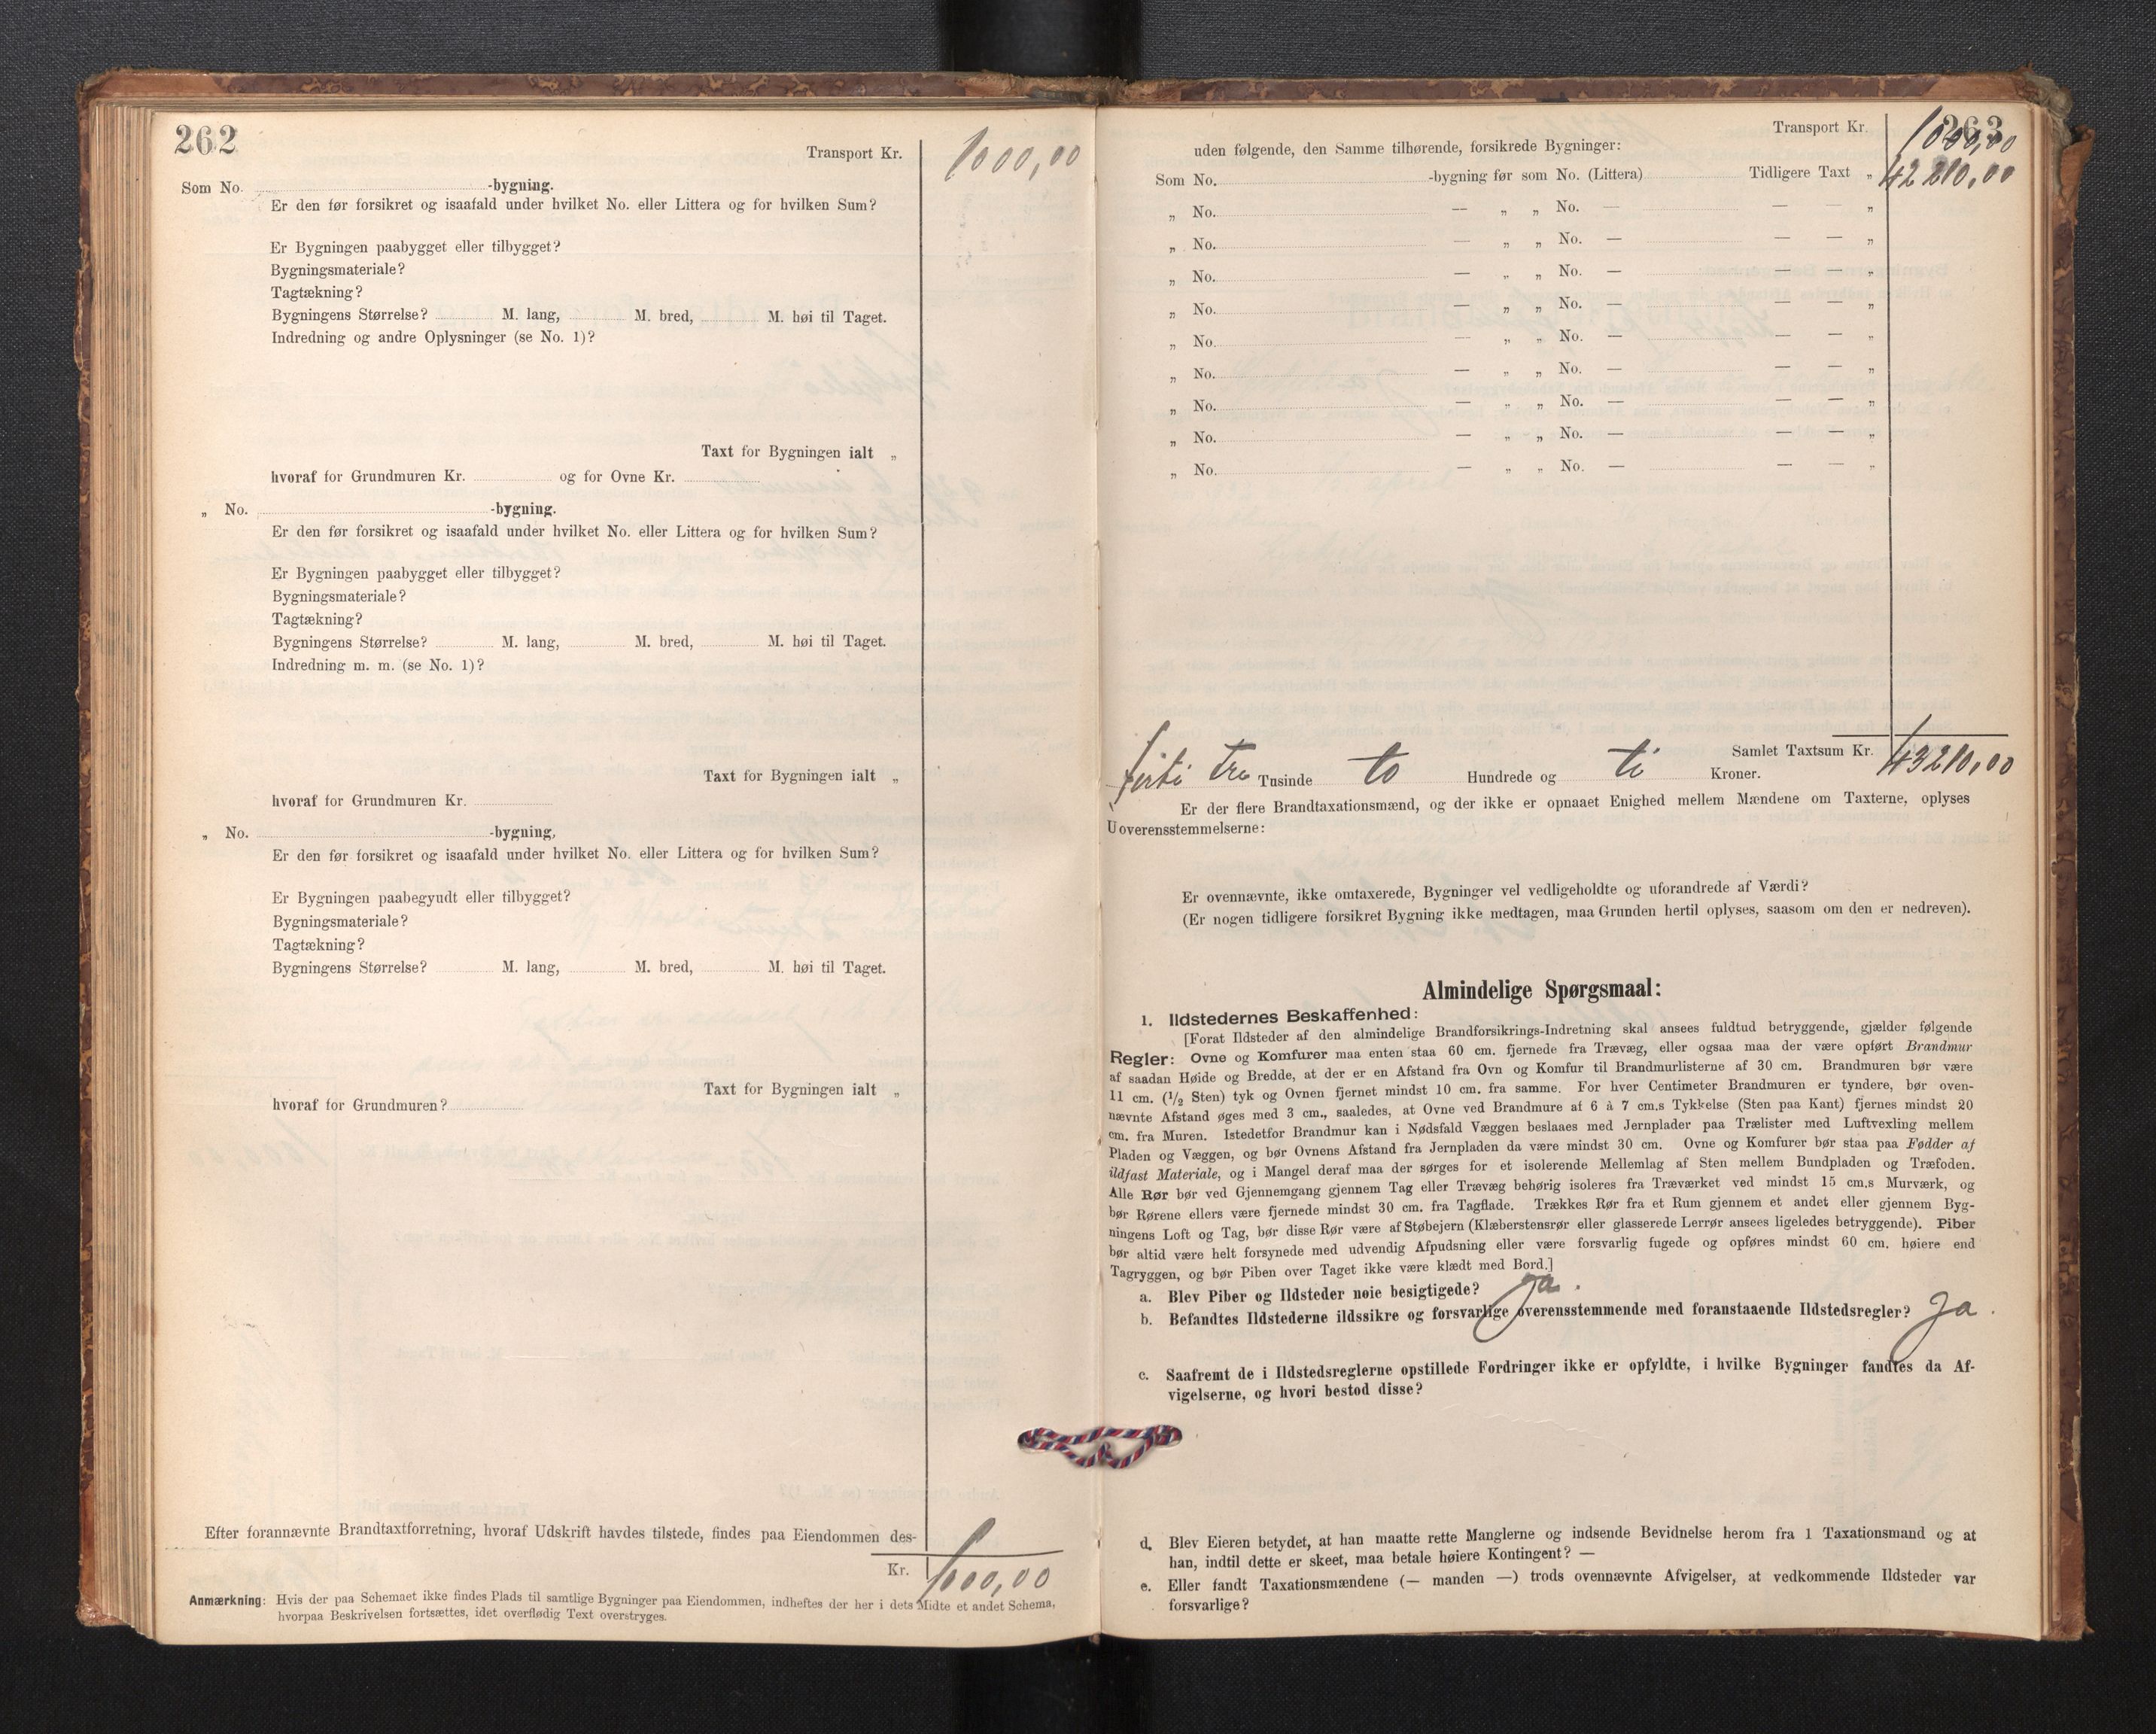 262
Transport Kr. 1000,00
Som No. -bygning.
Er den før forsikret og isaafald under hvilket No. eller Littera og for hvilken Sum?
Er Bygningen paabygget eller tilbygget?
Bygningsmateriale?
Tagtækning?
Bygningens Størrelse? M. lang, M. bred, M. høi til Taget.
Indredning og andre Oplysninger (se No. 1)?
Taxt for Bygningen ialt „
hvoraf for Grundmuren Kr. og for Ovne Kr.
„ No. -bygning.
Er den før forsikret og isaafald under hvilket No. eller Littera og for hvilken Sum?
Er Bygningen paabygget eller tilbygget?
Bygningsmateriale?
Tagtækning?
Bygningens Størrelse? M. lang, M. bred, M. høi til Taget.
Indredning m. m. (se No. 1)?
Taxt for Bygningen ialt „
hvoraf for Grundmuren Kr.
„ No. -bygning,
Er den før forsikret og isaafald under hvilket No. eller Littera og for hvilken Sum?
Er Bygningen paabegyndt eller tilbygget?
Bygningsmateriale?
Tagtækning?
Bygningens Størrelse? M. lang, M. bred, M. høi til Taget.
Taxt for Bygningen ialt „
hvoraf for Grundmuren?
Efter forannævnte Brandtaxtforretning, hvoraf Udskrift havdes tilstede, findes paa Eiendommen des-
Kr. 1000,00
Anmærkning: Hvis der paa Schemaet ikke findes Plads til samtlige Bygninger paa Eiendommen, indheftes der her i dets Midte et andet Schema,
hvorpaa Beskrivelsen fortsættes, idet overflødig Text overstryges.
263
Transport Kr. 1000,00
uden følgende, den Samme tilhørende, forsikrede Bygninger:
Som No. -bygning før som No. (Littera) Tidligere Taxt „ 42210,00
„ No. — „ „ No. — — — „
„ No. — „ „ No. — — — „
„ No. — „ „ No. — — — „
„ No. — „ „ No. — — — „
„ No. — „ „ No. — — — „
„ No. — „ „ No. — — — „
„ No. — „ „ No. — — — „
„ No. — „ „ No. — — — „
„ No. — „ „ No. — — — „
Samlet Taxtsum Kr. 43210,00
førti tre Tusinde to Hundrede og ti Kroner.
Er der flere Brandtaxationsmænd, og der ikke er opnaaet Enighed mellem Mændene om Taxterne, oplyses
Uoverensstemmelserne:
Er ovennævnte, ikke omtaxerede, Bygninger vel vedligeholdte og uforandrede af Værdi?
(Er nogen tidligere forsikret Bygning ikke medtagen, maa Grunden hertil oplyses, saasom om den er nedreven).
Almindelige Spørgsmaal:
1. Ildstedernes Beskaffenhed:
[Forat Ildsteder af den almindelige Brandforsikrings-Indretning skal ansees fuldtud betryggende, gjælder følgende
Regler: Ovne og Komfurer maa enten staa 60 cm. fjernede fra Trævæg, eller ogsaa maa der være opført Brandmur
af saadan Høide og Bredde, at der er en Afstand fra Ovn og Komfur til Brandmurlisterne af 30 cm. Brandmuren bør være
11 cm. (1/2 Sten) tyk og Ovnen fjernet mindst 10 cm. fra samme. For hver Centimeter Brandmuren er tyndere, bør oven-
nævnte Afstand øges med 3 cm., saaledes, at Ovne ved Brandmure af 6 à 7 cm.s Tykkelse (Sten paa Kant) fjernes mindst 20
cm. fra Muren. Istedetfor Brandmur kan i Nødsfald Væggen beslaaes med Jernplader paa Trælister med Luftvexling mellem
Pladen og Væggen, og bør Ovnens Afstand fra Jernpladen da være mindst 30 cm. Ovne og Komfurer bør staa paa Fødder af
ildfast Materiale, og i Mangel deraf maa der sørges for et isolerende Mellemlag af Sten mellem Bundpladen og Træfoden.
Alle Rør bør ved Gjennemgang gjennem Tag eller Trævæg behørig isoleres fra Træværket ved mindst 15 cm.s Murværk, og
bør Rørene ellers være fjernede mindst 30 cm. fra Tagflade. Trækkes Rør fra et Rum gjennem et andet eller gjennem Byg-
ningens Loft og Tag, bør disse Rør være af Støbejern (Klæberstensrør eller glasserede Lerrør ansees ligeledes betryggende). Piber
bør altid være helt forsynede med udvendig Afpudsning eller være forsvarlig fugede og opføres mindst 60 cm. høiere end
Tagryggen, og bør Piben over Taget ikke være klædt med Bord.]
a. Blev Piber og Ildsteder nøie besigtigede? ja.
b. Befandtes Ildstederne ildssikre og forsvarlige overensstemmende med foranstaaende Ildstedsregler? Ja.
c. Saafremt de i Ildstedsreglerne opstillede Fordringer ikke er opfyldte, i hvilke Bygninger fandtes da Af-
vigelserne, og hvori bestod disse?
d. Blev Eieren betydet, at han maatte rette Manglerne og indsende Bevidnelse herom fra 1 Taxationsmand og at
han, indtil dette er skeet, maa betale høiere Kontingent? —
e. Eller fandt Taxationsmændene (— manden —) trods ovennævnte Afvigelser, at vedkommende Ildsteder var
forsvarlige?